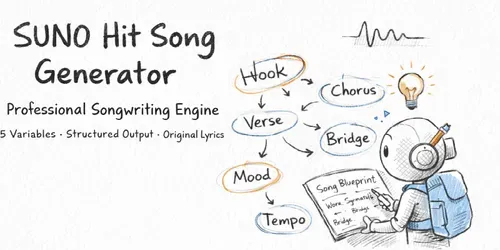 SUNO Hit Song
Generator
Professional Songwriting Engine
5 Variables · Structured Output · Original Lyrics
Hook
Chorus
Verse
Bridge
Mood
Tempo
Song Blueprint
Work
Bridge
Bridge